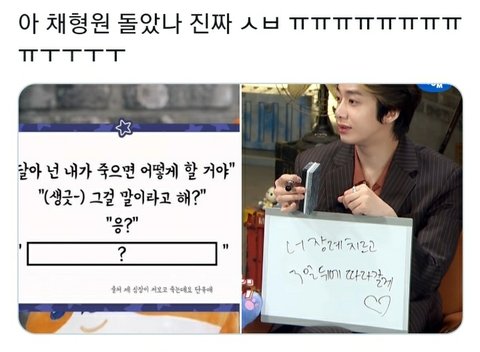 아 채형원 돌았나 진짜 ㅅㅂ ㅠㅠㅠㅠㅠㅠㅠㅠ
ㅠㅜㅜㅜㅜ
달아 넌 내가 죽으면 어떻게 할 거야"
"(생긋-) 그걸 말이라고 해?"
"응?"
" ? "
너 장례 치르고
3일 뒤에 따라갈게
♡